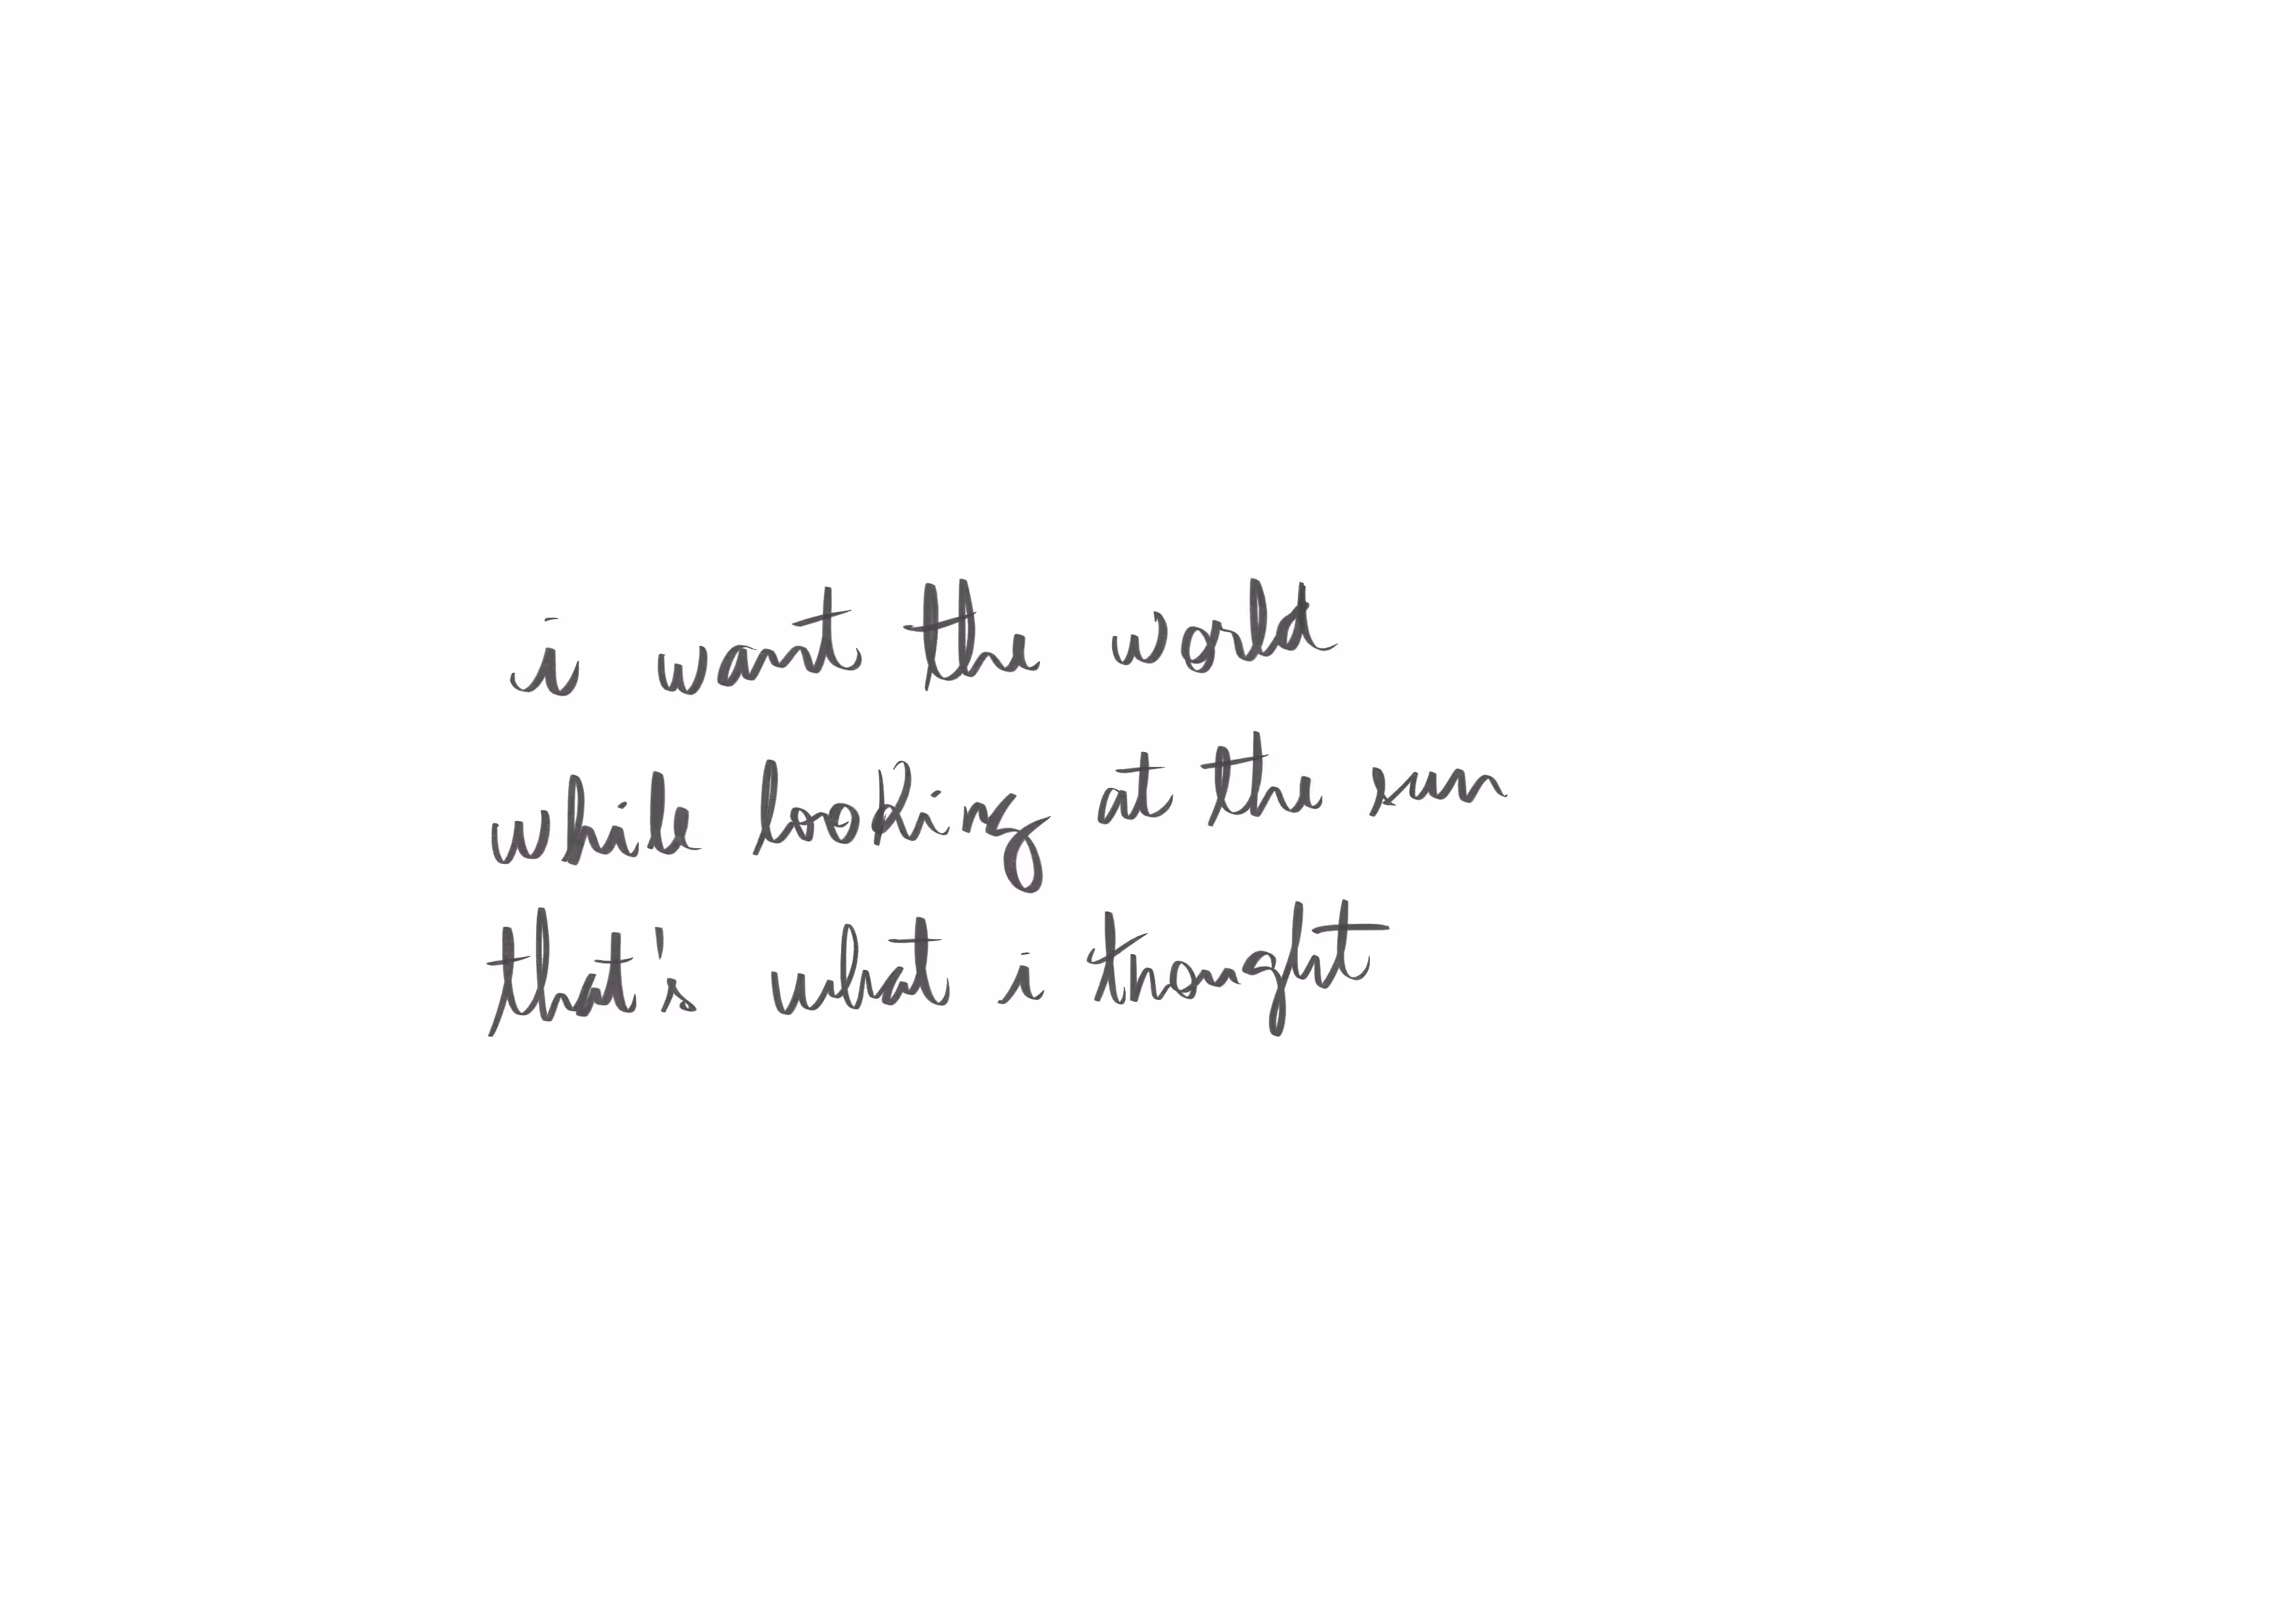 i want the world
while looking at the sun
that's what i thought